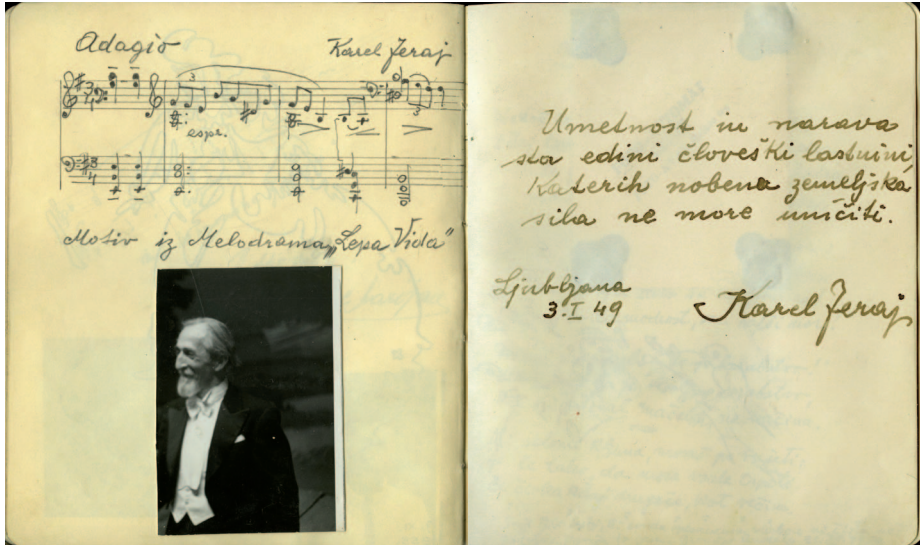 Adagio
Karel Jeraj
3
espr.
3
Motiv iz Melodrama „Lepa Vida"
Umetnost in narava
sta edini človeški lastnini,
katerih nobena zemeljska
sila ne more uničiti.
Ljubljana
3. I 49
Karel Jeraj